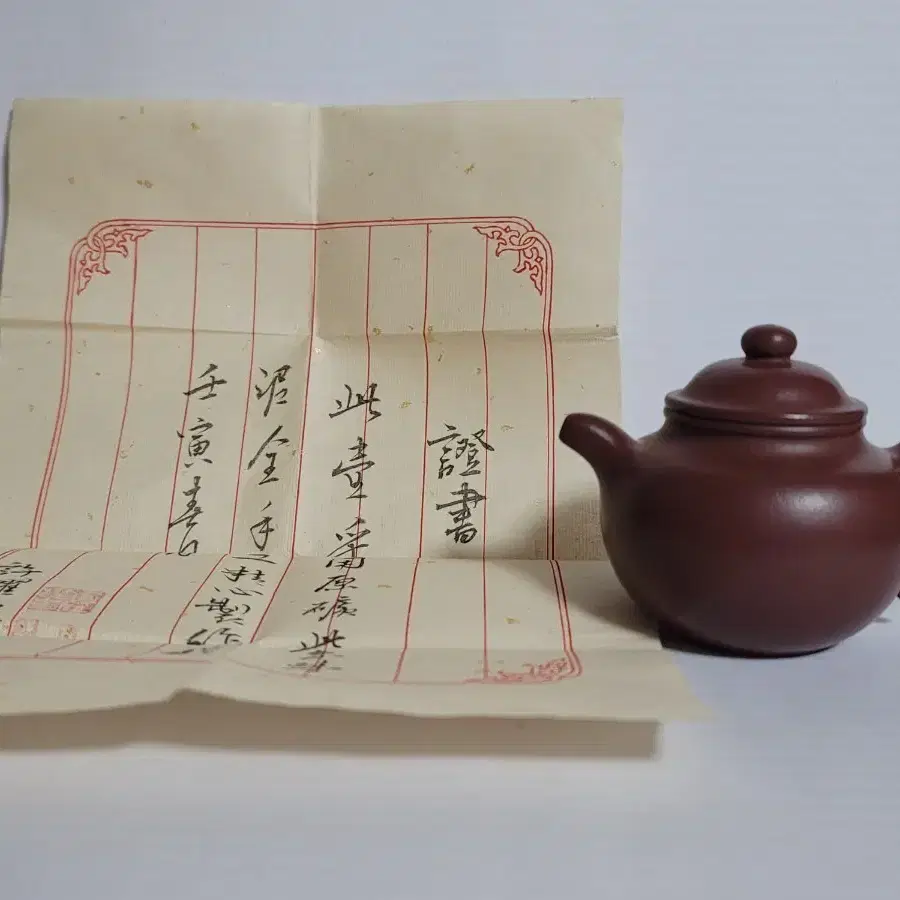 證書
此壺采用原礦紫
泥全手工精心製作
壬寅春月
許